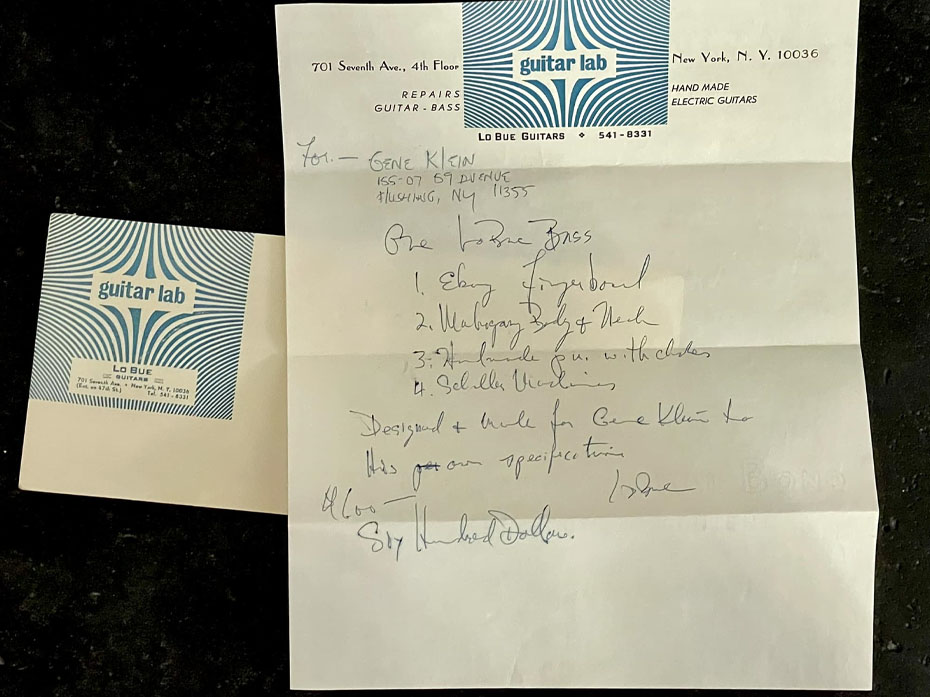 701 Seventh Ave., 4th Floor
REPAIRS
GUITAR - BASS
guitar lab
New York, N. Y. 10036
HAND MADE
ELECTRIC GUITARS
LO BUE GUITARS ❖ 541-8331
For. — GENE KLEIN
155-07 59 AVENUE
FLUSHING, NY 11355
One LoBue Bass
1. Ebony Fingerboard
2. Mahogany Body & Neck
3. Handmade p.u. with
4. Schaller Machines
Designed & Made for Gene Klein to
His own specifications
LoBue
$600—
Six Hundred Dollars.
guitar lab
LO BUE
GUITARS
701 Seventh Ave. • New York, N. Y. 10036
(Ent. on 47th St.) Tel. 541-8331
BOND